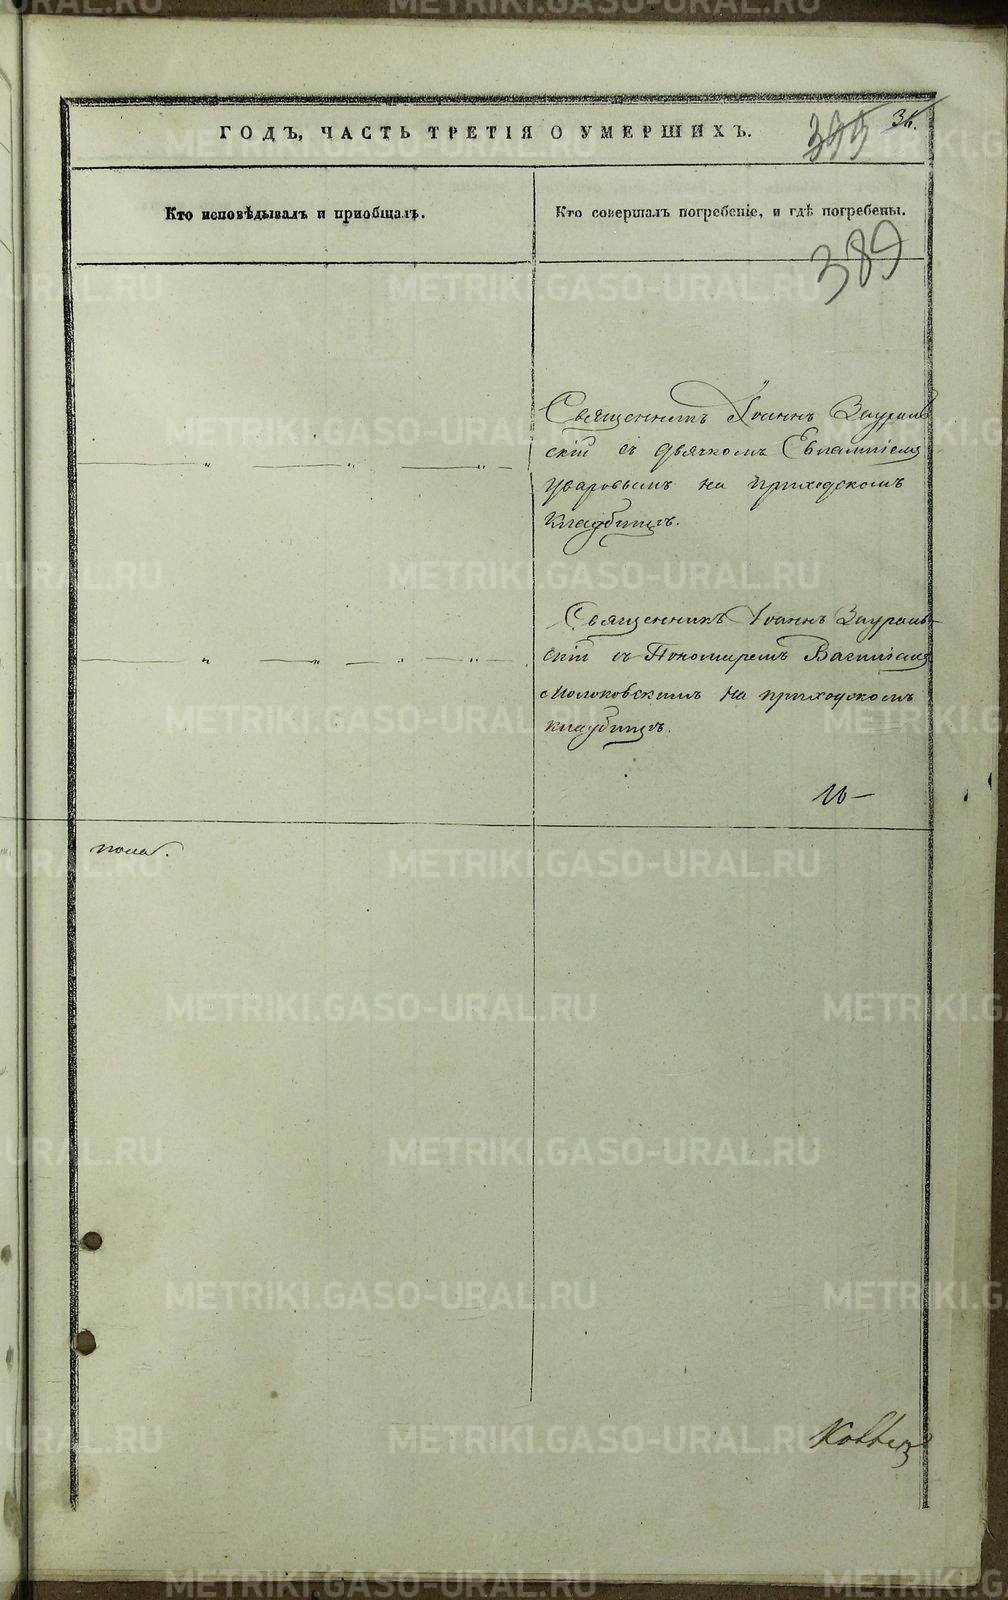 ГОДЪ, ЧАСТЬ ТРЕТІЯ О УМЕРШИХЪ.
Кто исповѣдывалъ и пріобщалъ.
Кто совершалъ погребеніе, и гдѣ погребены.
389
Священникъ Іоаннъ Заураль
скій съ дьячкомъ Евлампіемъ
Уваровымъ на приходскомъ
кладбищѣ.
Священникъ Іоаннъ Заураль-
скій съ Пономаремъ Василіемъ
Смолоковскимъ на приходскомъ
кладбищѣ.
пола.
METRIKI.GASO-URAL.RU